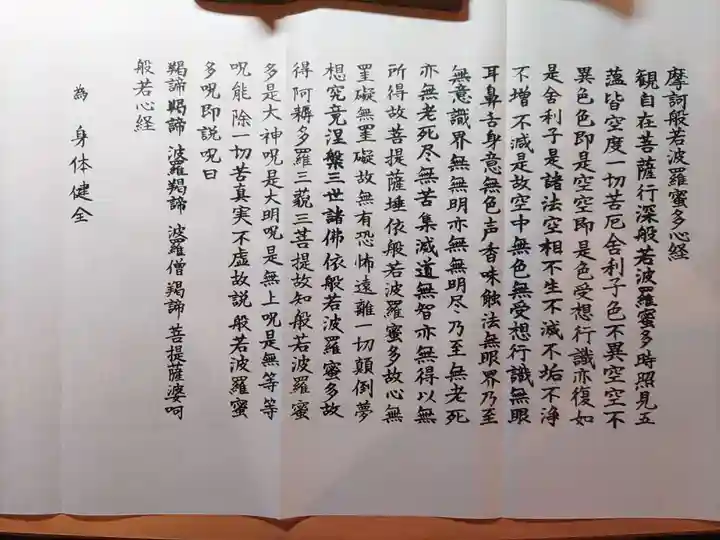 摩訶般若波羅蜜多心経
観自在菩薩行深般若波羅蜜多時照見五
蕰皆空度一切苦厄舎利子色不異空空不
異色色即是空空即是色受想行識亦復如
是舎利子是諸法空相不生不滅不垢不浄
不増不減是故空中無色無受想行識無眼
耳鼻舌身意無色声香味触法無眼界乃至
無意識界無無明亦無無明尽乃至無老死
亦無老死尽無苦集滅道無智亦無得以無
所得故菩提薩埵依般若波羅蜜多故心無
罣礙無罣礙故無有恐怖遠離一切顛倒夢
想究竟涅槃三世諸佛依般若波羅蜜多故
得阿耨多羅三藐三菩提故知般若波羅蜜
多是大神呪是大明呪是無上呪是無等等
呪能除一切苦真実不虚故説般若波羅蜜
多呪即説呪曰
羯諦羯諦 波羅羯諦 波羅僧羯諦 菩提薩婆呵
般若心経
為 身体健全